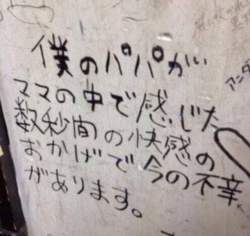 僕のパパが
ママの中で感じた
数秒間の快感の
おかげで今の不幸
があります。
アンタ